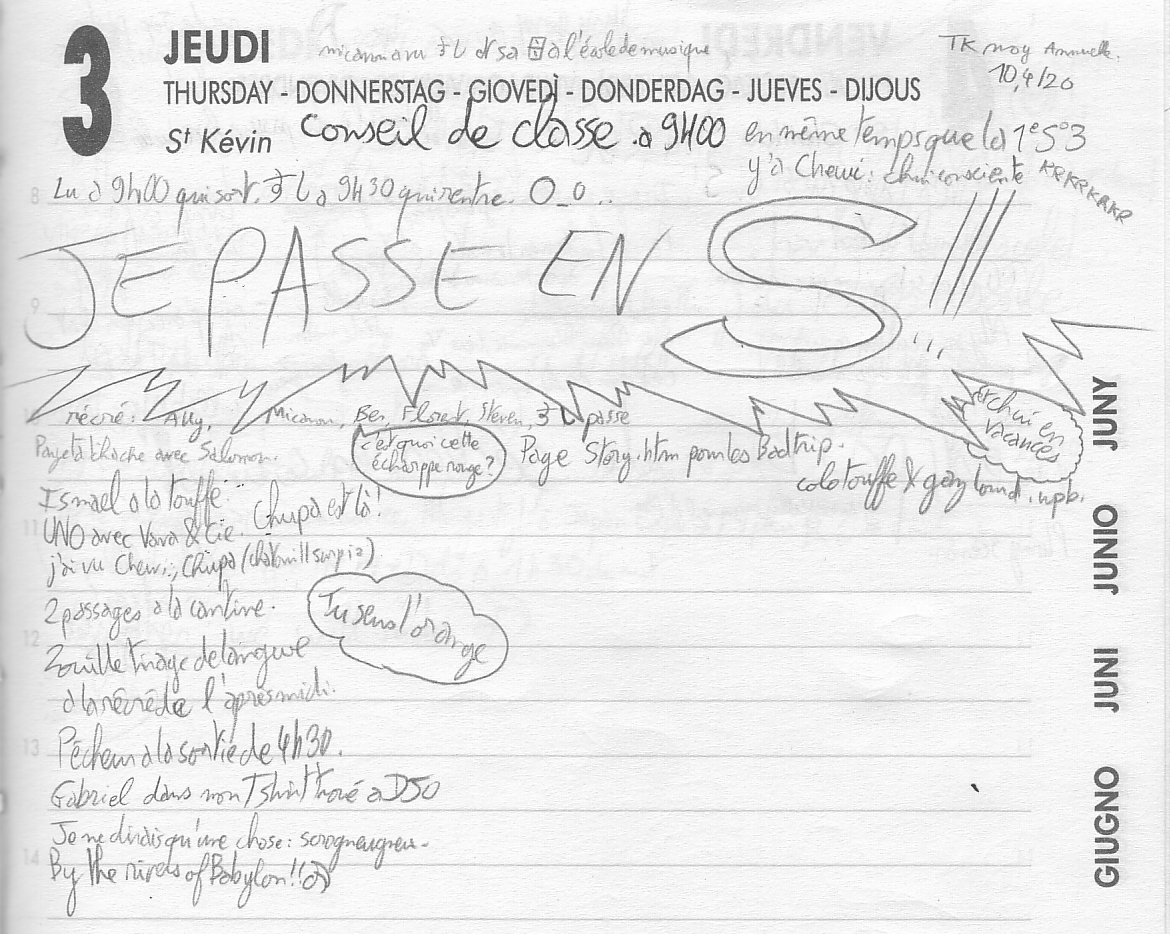 3 JEUDI
à l'école de musique
TK moy Annuelle.
10,4/20
THURSDAY - DONNERSTAG - GIOVEDÌ - DONDERDAG - JUEVES - DIJOUS
St Kévin
Conseil de classe à 9H00 en même temps que la 1°S°3
y'a Chewi: chui consciente KRKRKRKR
Lu à 9h00 qui sort, à 9H30 qui rentre. O_O..
JE PASSE EN S!!!...
récré: Ally, Micanon, Ben, Florent, Steven, passe
avec Salomon.
c'est quoi cette
écharppe rouge?
Page Story.htm pour les Badtrip.
et chui en
vacances
colo touffe &
Ismael a la touffe
UNO avec Vava & Cie. Chupa est là!
j'ai vu Chewi, Chupa
2 passages à la cantine.
Tu sens l'orange
Zouille tirage de langue
à la récré de l'après midi.
Pêcheur à la sortie de 4h30.
Gabriel dans mon Tshirt troué à D50
Je ne dirais qu'une chose: scrogneugneu.
By the rivers of Babylon!!
8
9
11
12
13
14
JUNY
JUNIO
JUNI
GIUGNO